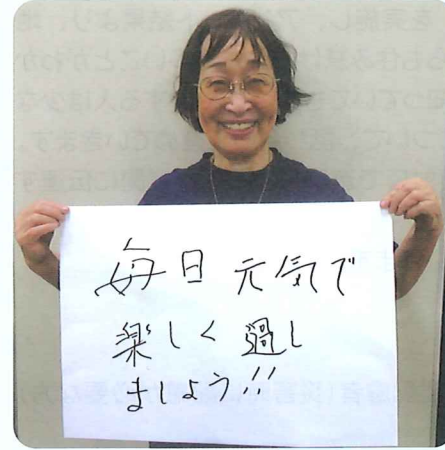 毎日 元気で
楽しく 過し
ましょう!!